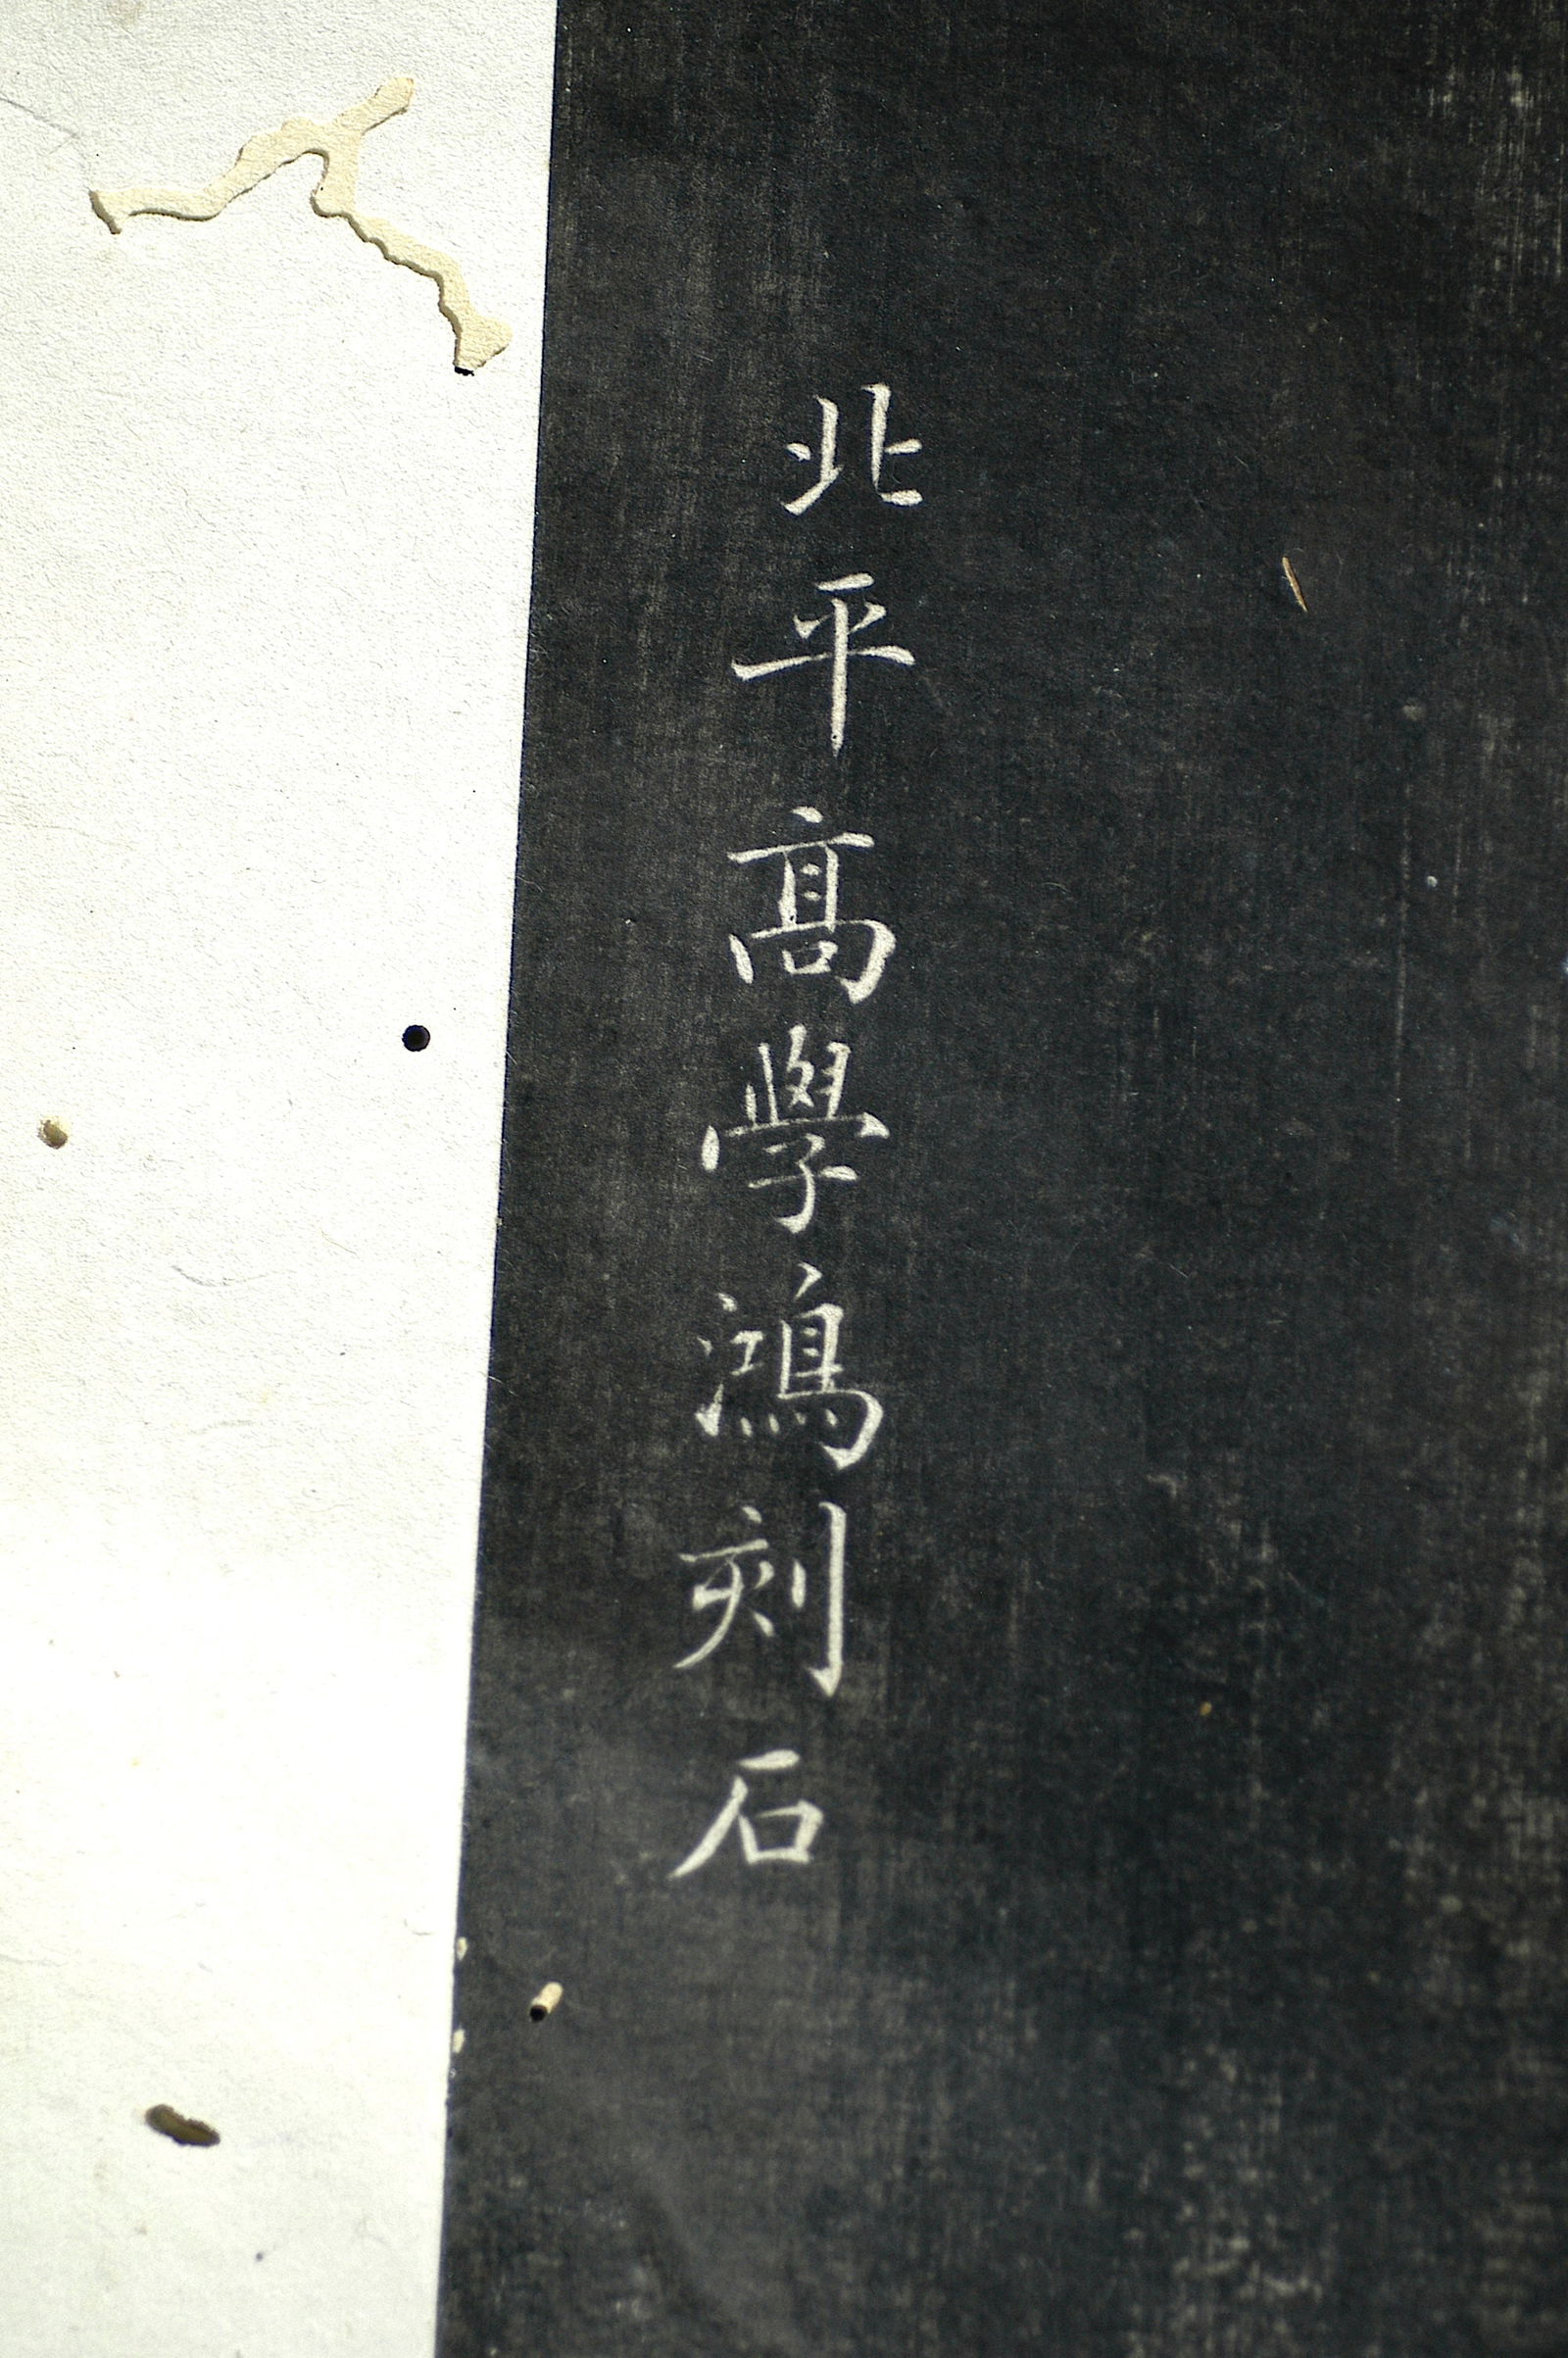 北平髙學鴻刻石